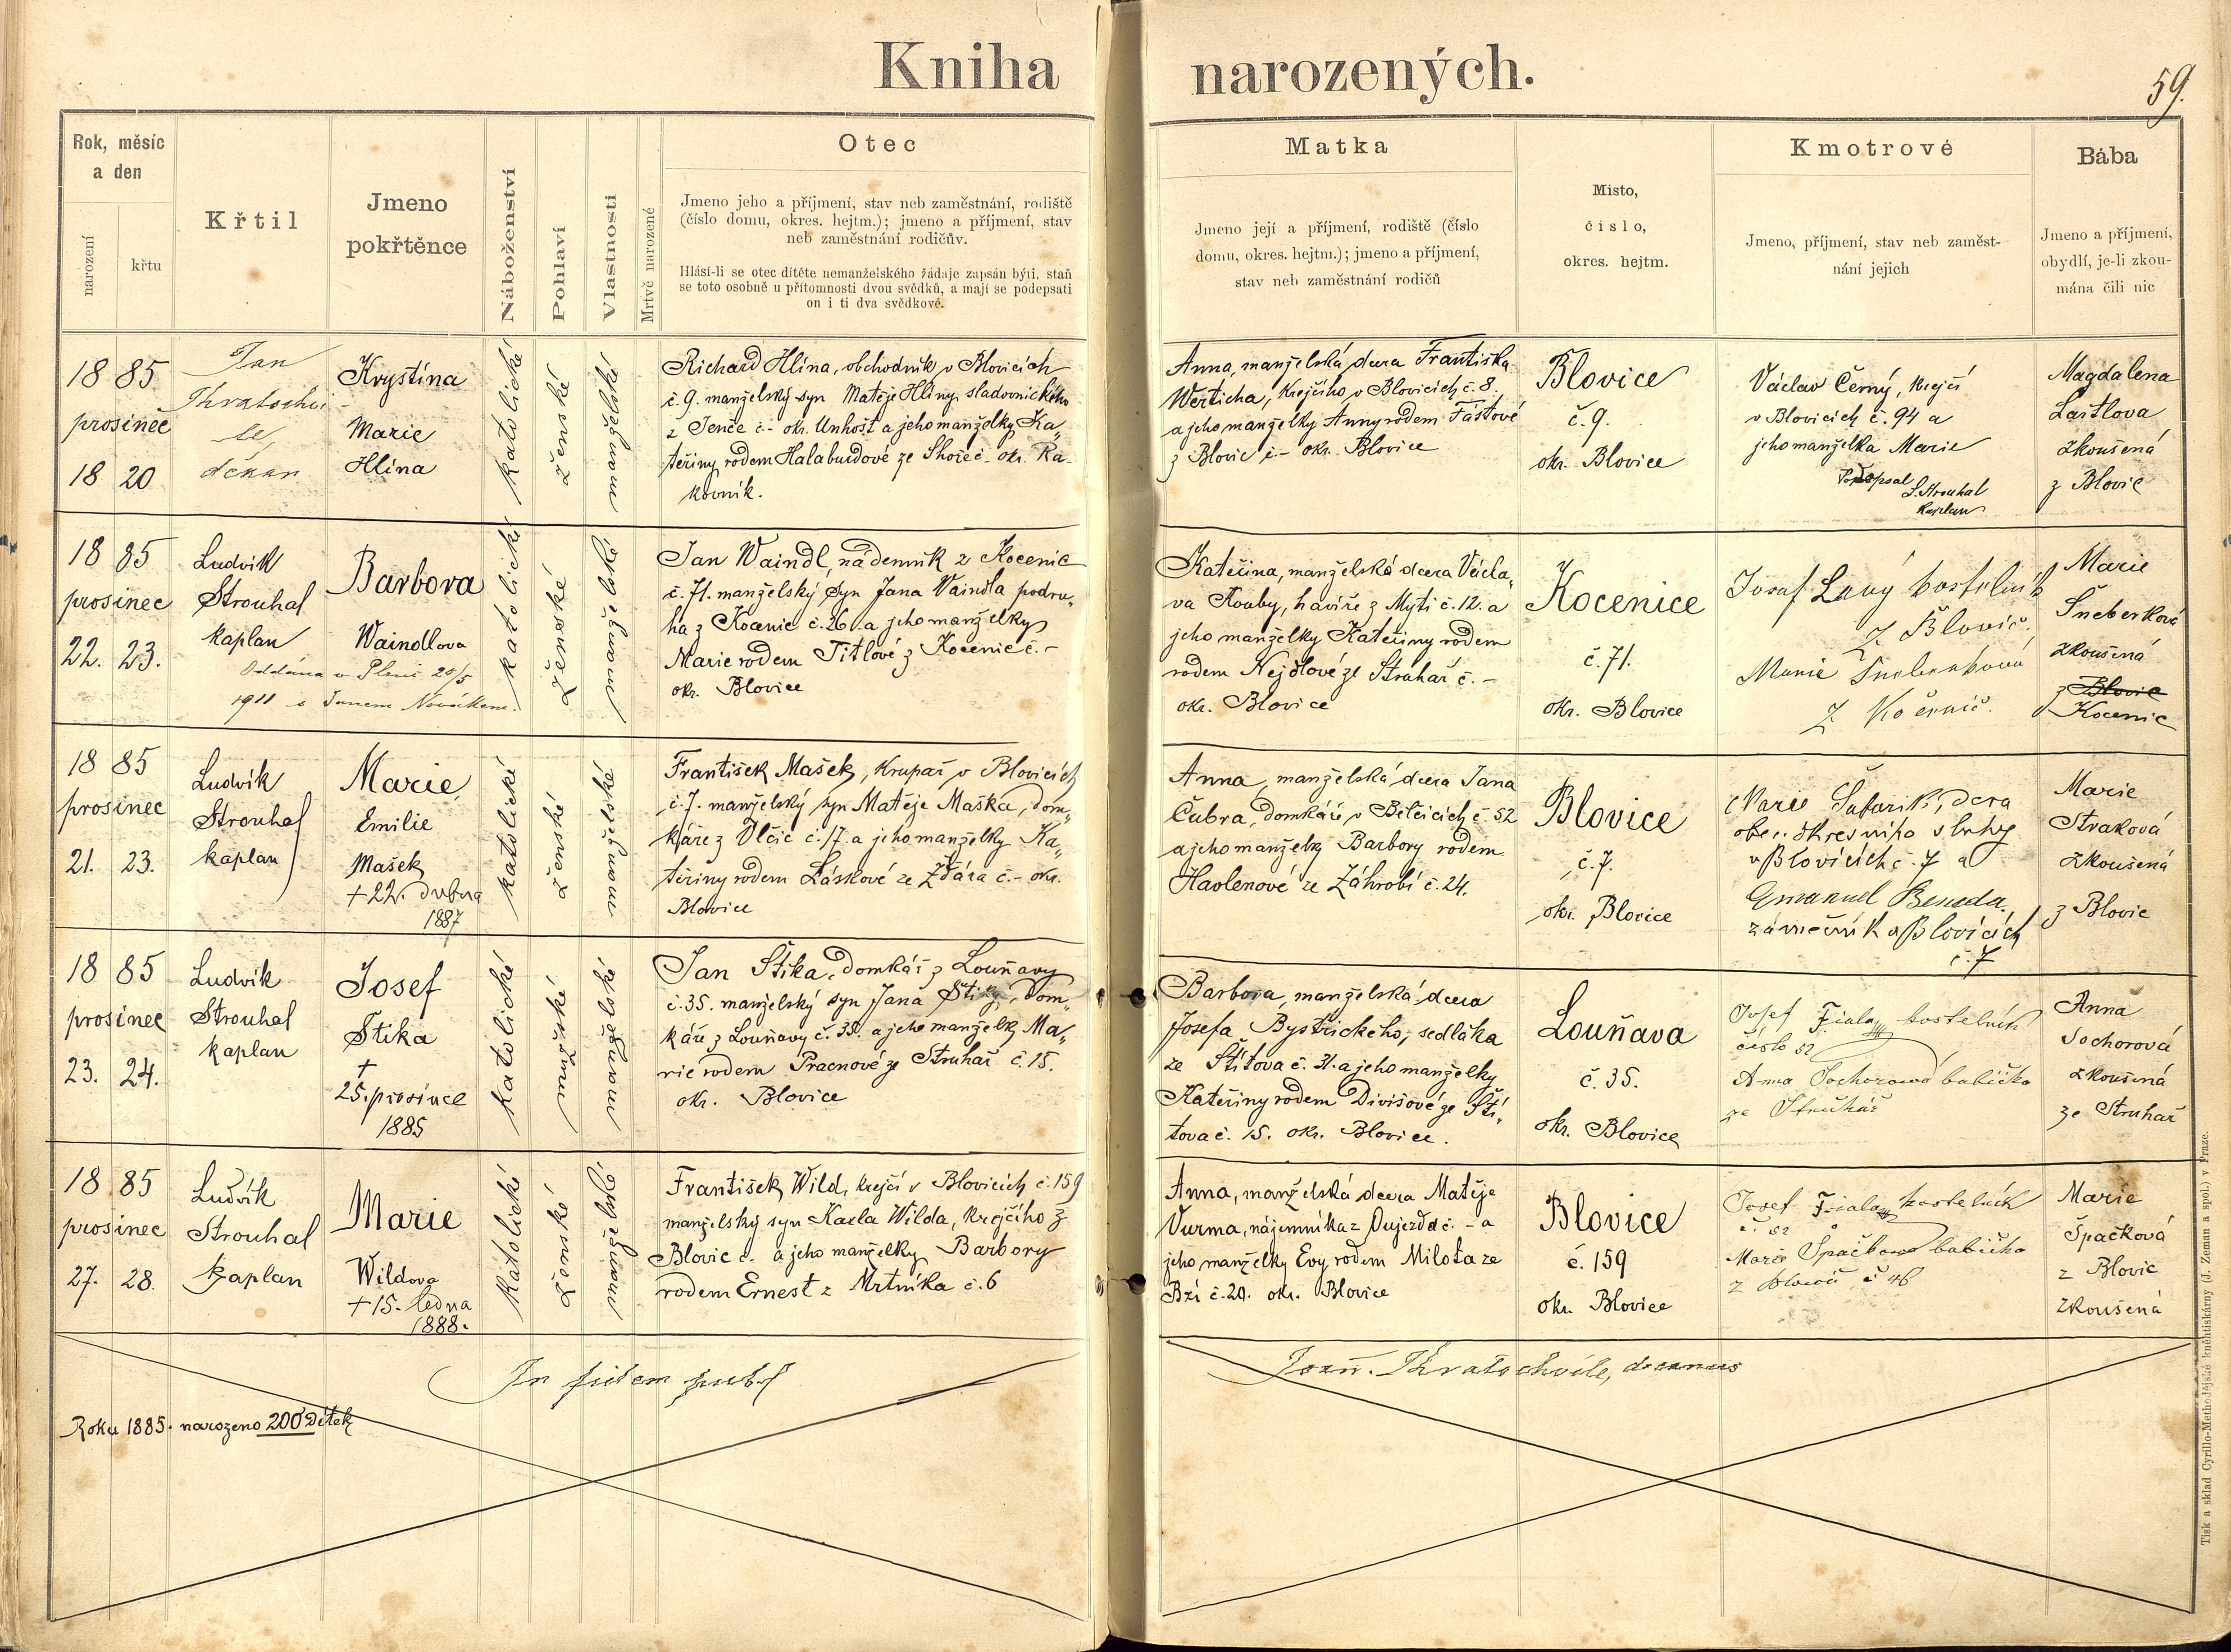 Kniha narozených.
59.
Rok, měsíc
a den
narození
křtu
Křtil
Jmeno
pokřtěnce
Náboženství
Pohlaví
Vlastnosti
Mrtvě narozené
Otec
Jmeno jeho a příjmení, stav neb zaměstnání, rodiště
(číslo domu, okres. hejtm.); jmeno a příjmení, stav
neb zaměstnání rodičův.
Hlásí-li se otec dítěte nemanželského žádaje zapsán býti, staň
se toto osobně u přítomnosti dvou svědků, a mají se podepsati
on i ti dva svědkové.
Matka
Jmeno její a příjmení, rodiště (číslo
domu, okres. hejtm.); jmeno a příjmení,
stav neb zaměstnání rodičů
Místo,
číslo,
okres. hejtm.
Kmotrové
Jmeno, příjmení, stav neb zaměst-
nání jejich
Bába
Jmeno a příjmení,
obydlí, je-li zkou-
mána čili nic
1885
prosinec
18 20
Jan
děkan
Krystína
Marie
Hlína
katolické
ženské
manželské
Richard Hlína, obchodník v Blovicích
č. 9. manželský syn Matěje Hlíny sladovnického
z Jenče č.- okr. Unhošt a jeho manželky Ka„
teřiny rodem Halaburdové ze Shoře č- okr. Ra-
kovník.
Anna, manželská dcera Františka
Werticha, Krejčího v Blovicích č. 8.
a jeho manželky Anny rodem Fastové
z Blovic č.- okr. Blovice
Blovice
č. 9.
okr. Blovice
Václav Černý, krejčí
v Blovicích č. 94 a
jeho manželka Marie
Podepsal
L. Strouhal
kaplan
Magdalena
Laštlova
zkoušená
z Blovic
1885
prosinec
22. 23.
Ludvík
Strouhal
kaplan
Barbora
Waindlova
Oddána v Plzni 20/5
1911 s Janem Novákem.
katolické
ženské
manželské
Jan Waindl, nádenník z Kocenic
č. 71. manželský syn Jana Vaindla podru„
ha z Kocenic č. 26 a jeho manželky
Marie rodem Titlové z Kocenic č.-
okr. Blovice
Kateřina, manželská dcera Václa„
va Kouby, havíře z Mýti č. 12. a
jeho manželky Kateřiny rodem
rodem Nejdlové ze Struhař č. -
okr. Blovice
Kocenice
č. 71.
okr. Blovice
Josef Lavý kostelník
z Blovic.
Marie Šneberková
z Kocenic.
Marie
Šneberková
zkoušená
z Blovic
Kocenic
1885
prosinec
21. 23.
Ludvík
Strouhal
kaplan
Marie,
Emilie
Mašek
+ 22. dubna
1887
katolické
ženské
manželské
František Mašek, Krupař v Blovicích
č. 7. manželský syn Matěje Maška, dom„
káře z Vlčic č. 17. a jeho manželky Ka„
teřiny rodem Láskové ze Ždára č.- okr.
Blovice
Anna, manželská dcera Jana
Čubra, domkáře v Bělčicích č. 52
a jeho manželky Barbory rodem
Havlenové ze Záhrobí č. 24.
Blovice
č. 7.
okr. Blovice
Marie Šafařík, dcera
obec. okresního sluhy
v Blovicích č. 7 a
Emanuel Beneda
zámečník v Blovicích
č. 7
Marie
Straková
zkoušená
z Blovic
1885
prosinec
23. 24.
Ludvík
Strouhal
kaplan
Josef
Štika
+
25. prosince
1885
katolické
mužské
manželské
Jan Štika, domkář z Louňavy
č. 35. manželský syn Jana Štiky, dom„
káře z Louňavy č. 35. a jeho manželky Ma„
rie rodem Pracnové ze Struhař č. 15.
okr. Blovice
Barbora, manželská dcera
Josefa Bystřického, sedláka
ze Štítova č. 31. a jeho manželky
Kateřiny rodem Divišové ze Ští„
tova č. 15. okr. Blovice.
Louňava
č. 35.
okr. Blovice
Josef Fiala kostelník
číslo 52
Anna Sochorová babička
ze Struhař
Anna
Sochorová
zkoušená
ze Struhař
1885
prosinec
27. 28.
Ludvík
Strouhal
kaplan
Marie
Wildova
+ 15. ledna
1888.
katolické
ženské
manželské
František Wild, krejčí v Blovicích č. 159
manželský syn Karla Wilda, Krejčího z
Blovic č. a jeho manželky Barbory
rodem Ernest z Mrtníka č. 6
Anna, manželská dcera Matěje
Vurma, nájemníka z Oujezda č. - a
jeho manželky Evy rodem Milota ze
Bzí č. 20. okr. Blovice
Blovice
č. 159
okr. Blovice
Josef Fiala kostelník
č. 52
Marie Špačková babička
z Blovic č 46
Marie
Špačková
z Blovic
zkoušená
In fidem publ
Joan. Kratochvíle, decanus
Roku 1885. narozeno 200 dítek
Tisk a sklad Cyrillo-Methodějské knihtiskárny (J. Zeman a spol.) v Praze.